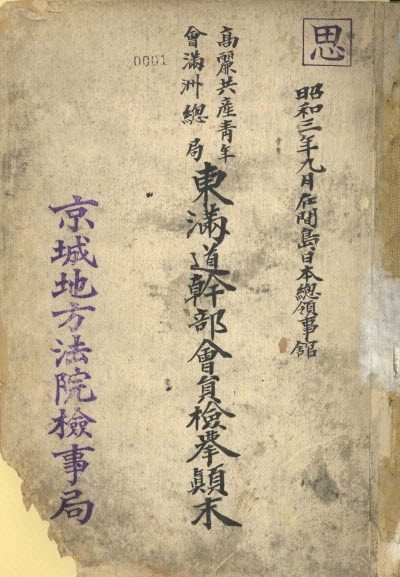 思
昭和三年九月在間島日本總領事館
高麗共産青年
會滿洲總局
東滿道幹部會員檢擧顚末
0001
京城地方法院檢事局